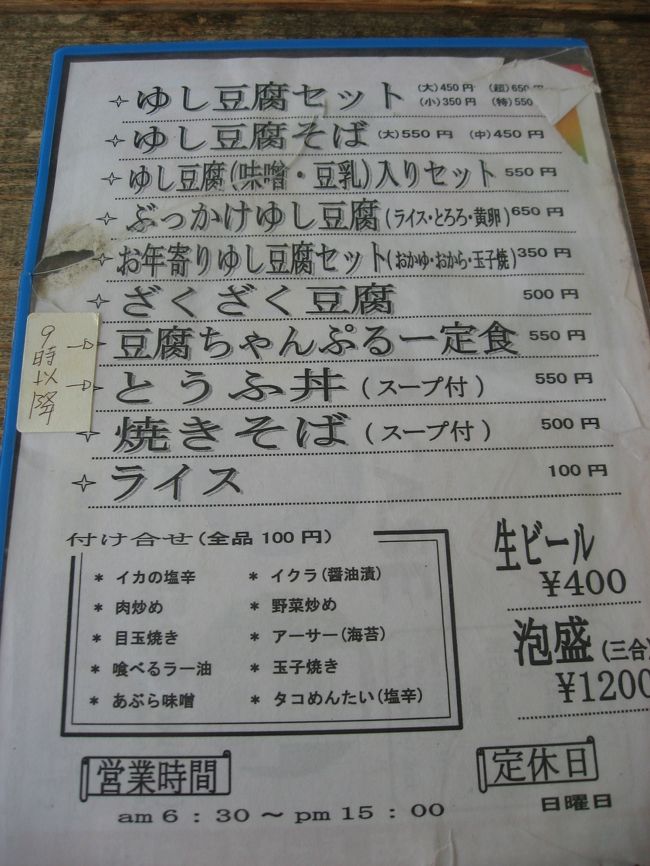 ✧ ゆし豆腐セット (大)450円 (超)650円
(小)350円 (特)550
✧ ゆし豆腐そば (大)550円 (中)450円
✧ ゆし豆腐(味噌・豆乳)入りセット 550円
✧ ぶっかけゆし豆腐(ライス・とろろ・黄卵) 650円
✧ お年寄りゆし豆腐セット(おかゆ・おから・玉子焼) 350円
✧ ざくざく豆腐 500円
✧ 豆腐ちゃんぷるー定食 550円
✧ とうふ丼(スープ付) 550円
✧ 焼きそば(スープ付) 500円
✧ ライス 100円
9時以降
付け合せ(全品100円)
* イカの塩辛 * イクラ(醤油漬)
* 肉炒め * 野菜炒め
* 目玉焼き * アーサー(海苔)
* 喰べるラー油 * 玉子焼き
* あぶら味噌 * タコめんたい(塩辛)
生ビール
¥400
泡盛(三合)
¥1200
営業時間
am 6:30～pm 15:00
定休日
日曜日